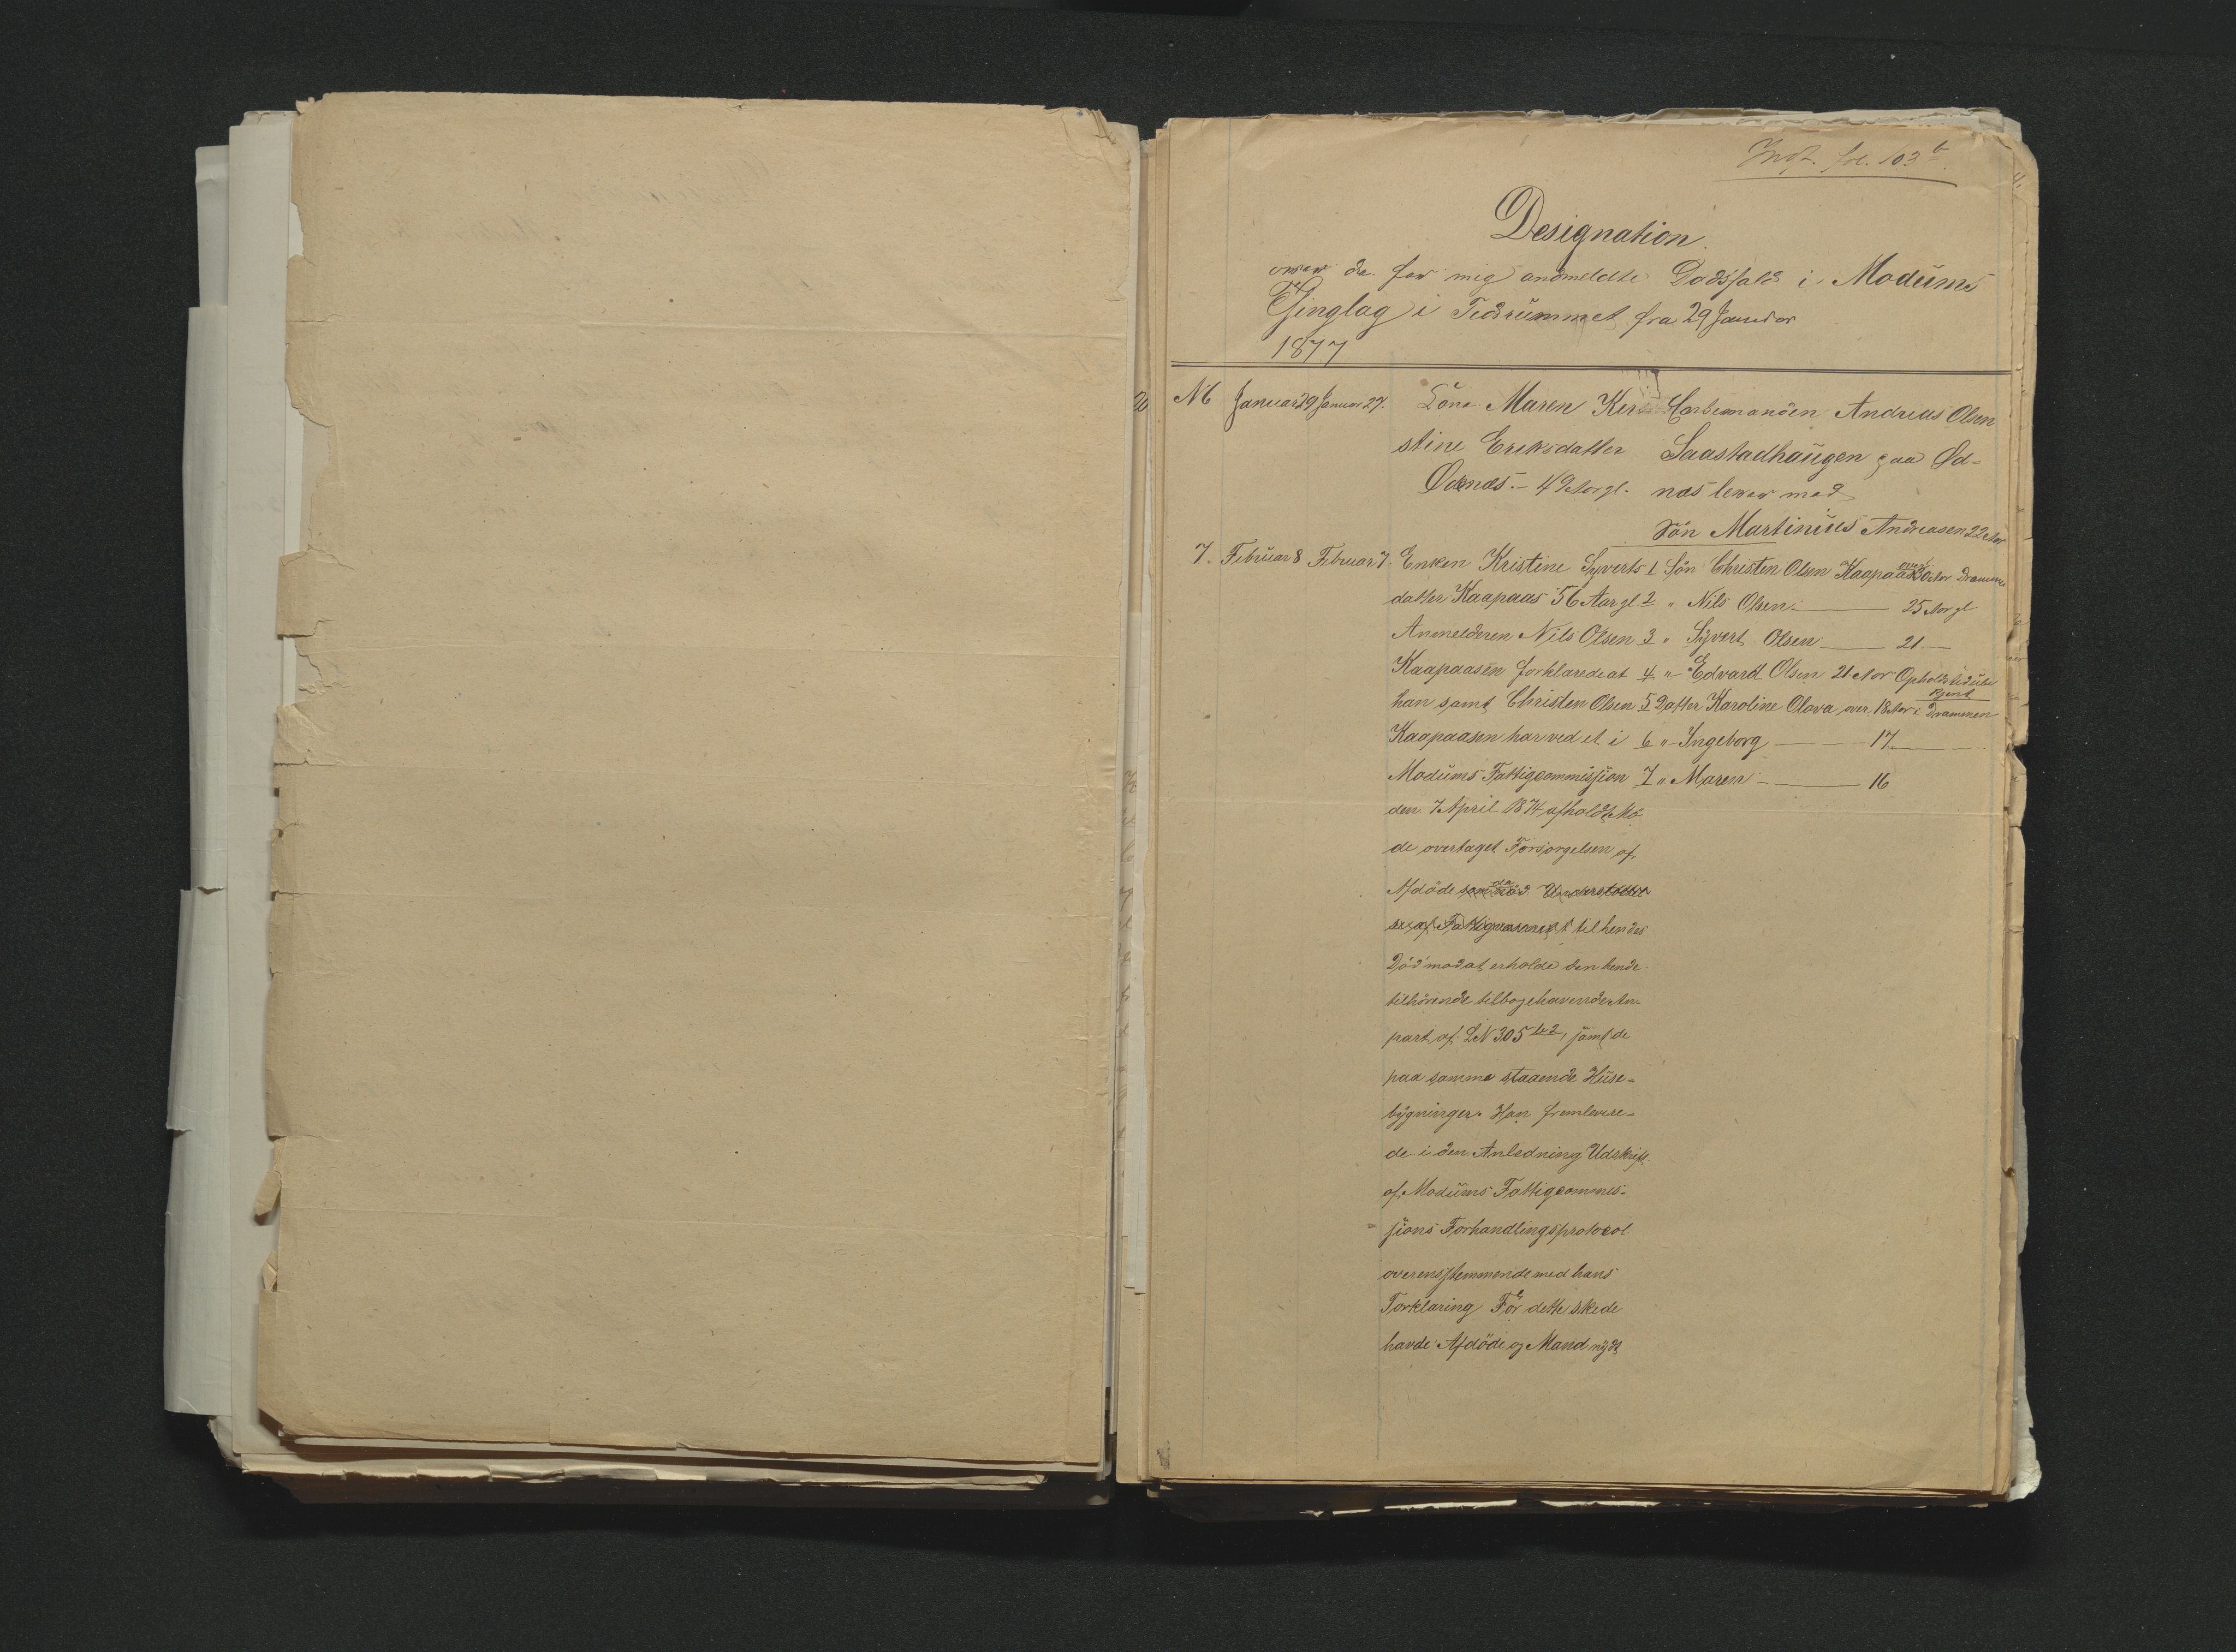 Indf. fol. 103 b
Designation
over de for mig anmeldte Dødsfald i Modums
Thinglag i Tidrummet fra 29 Januar
1877
N 6 Januar 29 Januar 27. Kone Maren Ker Enkemanden Andreas Olsen
stine Eriksdatter Saastadhaugen paa Ød-
Ødenæs - 49 Aar gl. næs lever med
Søn Martinius Andreasen 22 Aar
7. Februar 8 Februar 7. Enken Kristine Syverts 1 Søn Christen Olsen Kaapaas over 30 Aar Drammen
datter Kaapaas 56 Aar gl 2 " Nils Olsen 25 Aar gl
Anmelderen Nils Olsen 3 " Syvert Olsen 21 -
Kaapaasen forklarede at 4 " Edvard Olsen 21 Aar Opholdsted ube
kjent
han samt Christen Olsen 5 Datter Karoline Olava over 18 Aar i Drammen
Kaapaasen har ved et i 6 " Ingeborg 17
Modums Fattigcommission 7 " Maren 16
den 7 April 1874 afholdt Mø
de overtaget Forsørgelsen af
Afdøde som Understøttel
se af Fattigvæsenet til hendes
Død mod at erholde den hende
tilhørende tilbagehavende An
part af LN 305 , samt de
paa samme staaende Huse-
bygninger. Han fremlevere-
de i den Anledning Udskrift
af Modums Fattigcommis-
sions Forhandlingsprotocol
overensstemmende med hans
Forklaring Før dette skede
havde Afdøde og Mand nydt